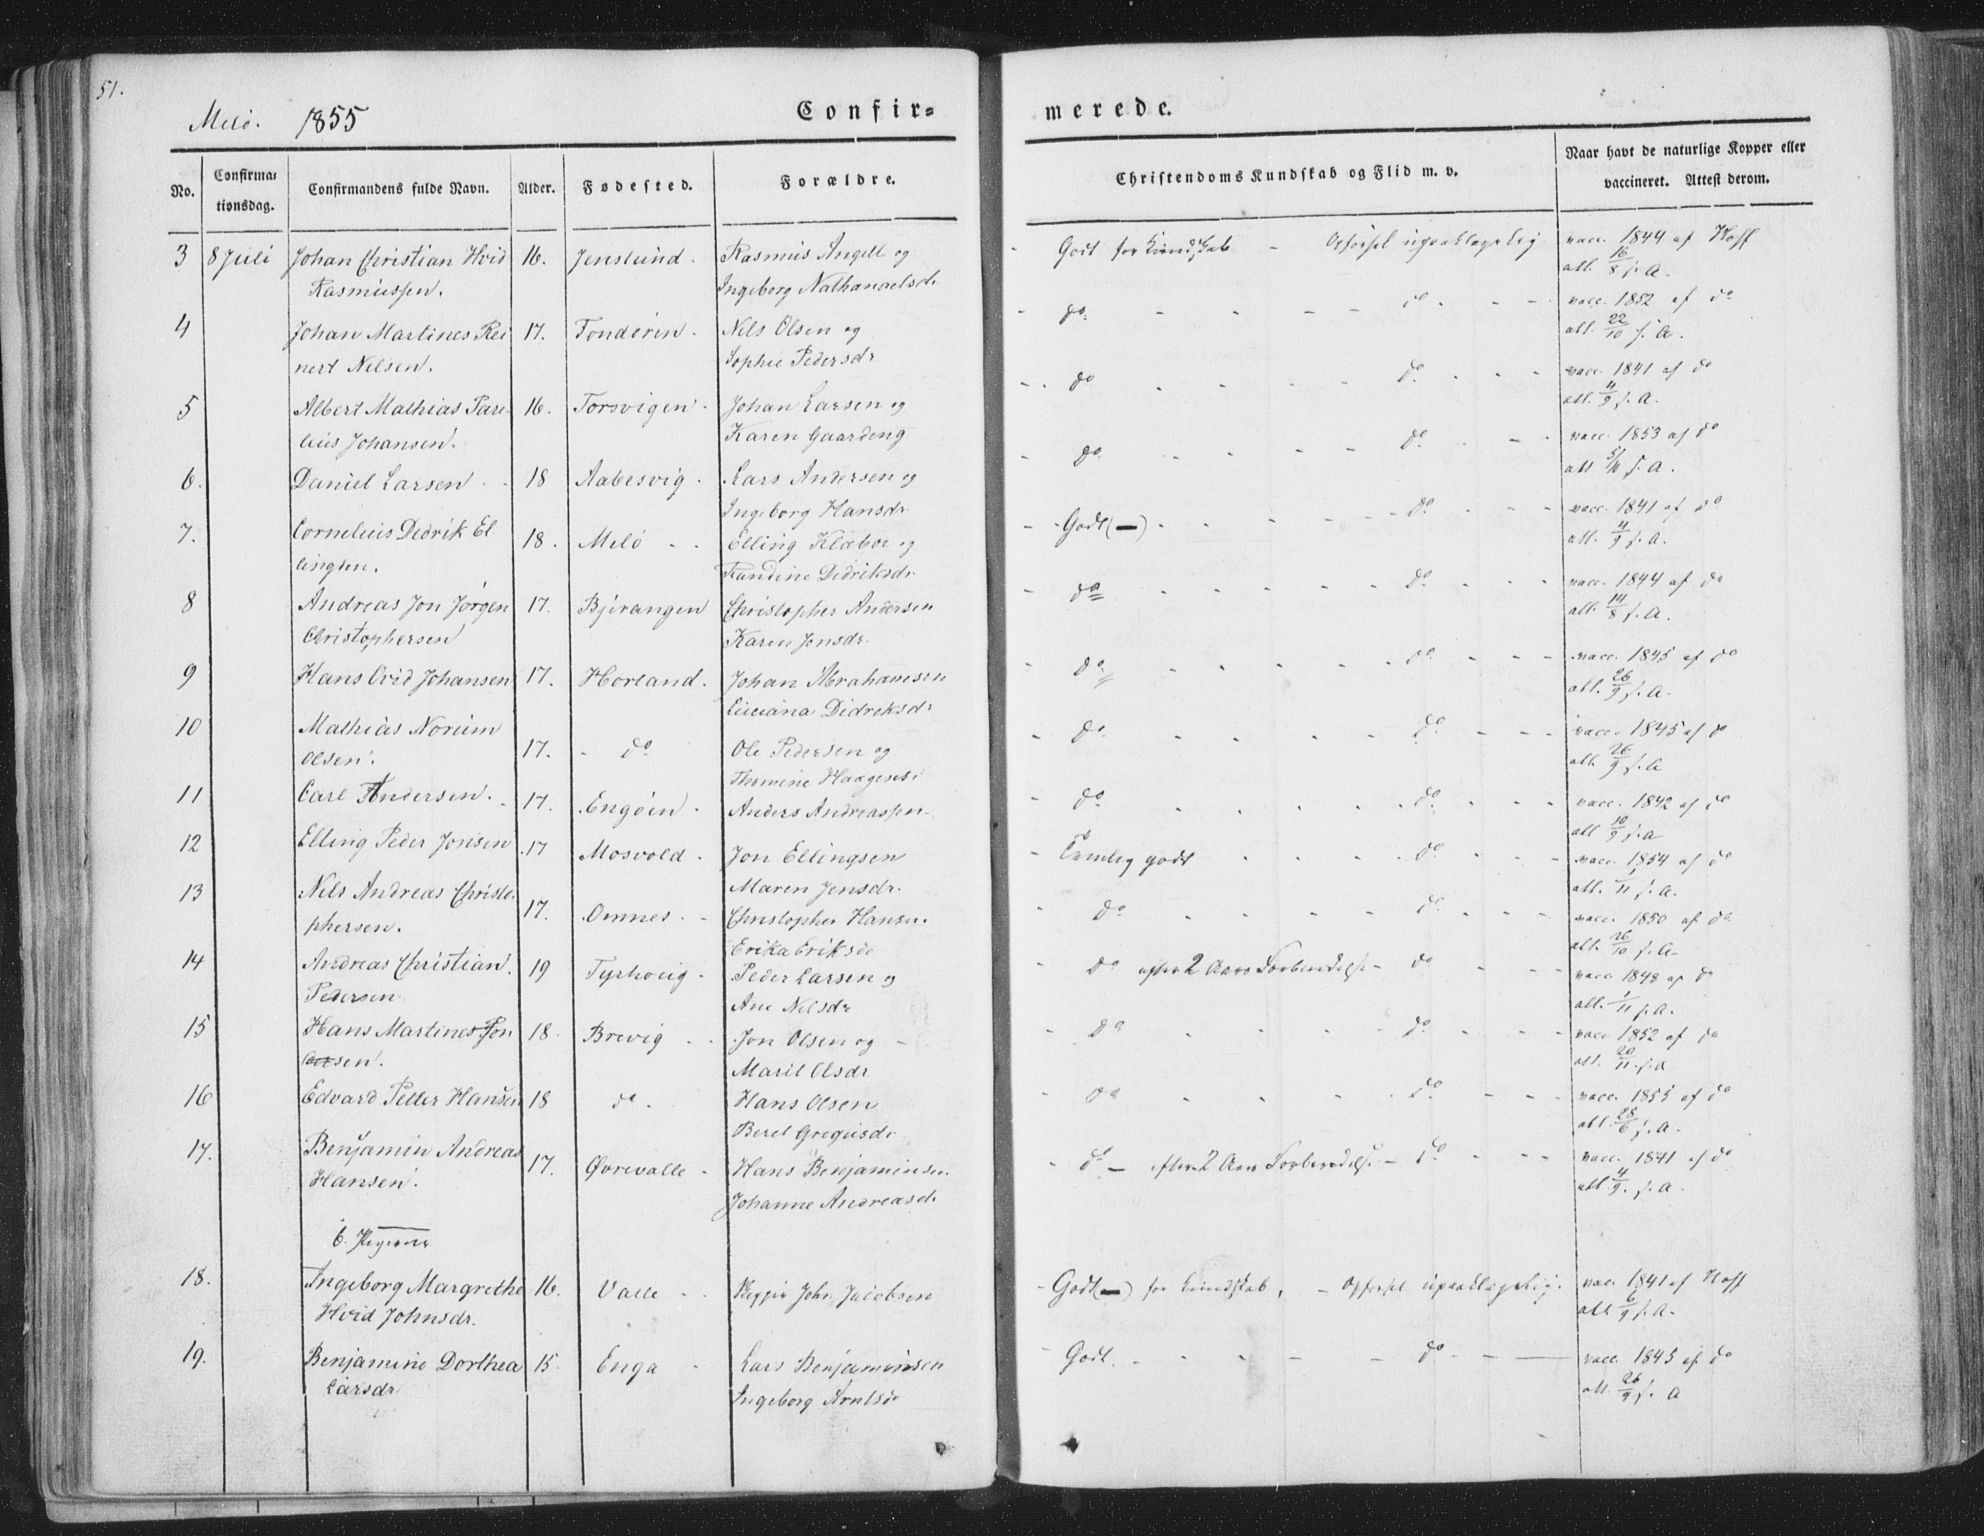 51.
Melö. 1855 Confir= merede.
No. Confirma= tionsdag. Confirmandens fulde Navn. Alder. Fødested. Forældre. Christendoms Kundskab og Flid m. v. Naar havt de naturlige Kopper eller vaccineret. Attest derom.
3 8 Juli Johan Christian Hvid 16. Jenslund. Rasmus Angell og Godt for Kundskab - Opförsel upaaklagelig vacc. 1844 af Hoff
Rasmussen. Ingeborg Nathanaelsdr att. 16/8 s. A.
4 Johan Martines Rei 17. Tonderen. Nils Olsen og do do vacc. 1852 af do
nert Nilsen. Sophie Pedersdr att. 22/10 s. A.
5 Albert Mathias Pare 16. Torsvigen. Johan Larsen og do do vacc. 1841 af do
lius Johansen. Karen Gaardeng att. 4/9 s. A.
6. Daniel Larsen 18 Aabesvig. Lars Andersen og do do vacc. 1853 af do
Ingeborg Hansdr att. s. A.
7. Cornelius Didrik El 18. Melö Elling Klæboe og Godt (-) do vacc. 1841 af do
lingsen. Randine Didriksdr att. 4/9 s. A.
8 Andreas Jon Jörgen 17. Bjerangen Christopher Andersen do do vacc. 1844 af do
Christophersen Karen Jonsdr. att. 14/8 s. A.
9 Hans Ovid Johansen 17. Horland. Johan Abrahamsen do do vacc. 1845 af do
Luciana Didriksdr att. 26/9 s. A.
10 Mathias Norum 17. do Ole Pedersen og do do vacc. 1845 af do
Olsen. Thomine Haagensd. att. 26/9 s. A
11 Carl Andersen. 17. Engöen. Anders Andreassen do do vacc. 1842 af do
att. 10/9 s. A
12 Elling Peder Jonsen 17 Mosvold. Jon Ellingsen Temlig godt do vacc. 1854 af do
Maren Jensdr. att. 1/11 s. A.
13 Nils Andreas Christo 17. Omnes. Christopher Hansen. do do vacc. 1850 af do
phersen. Erika Eriksd. att. 26/10 s. A.
14 Andreas Christian 19 Tyrhovig. Peder Larsen og do efter 2 Aars Forberedelse - do vacc. 1848 af do
Pedersen Ane Nilsdr att. 1/11 s. A.
15 Hans Martines Jon 18. Brevig Jon Olsen og do do vacc. 1852 af do
sen. Marit Olsdr att. 20/11 s. A
16 Edvard Petter Hansen 18 do. Hans Olsen do do vacc. 1855 af do
Beret Gregusdr att. 28/6 s. A.
17. Benjamin Andreas 17. Övrevalle Hans Benjaminsen do - efter 2 Aars Forberedelse - do vacc. 1841 af do
Hansen. Johanne Andreasd. att. 4/9 s. A.
b. Pigerne
18. Ingeborg Margrethe 16. Valle John Jacobsen Godt (-) for Kundskab, - Opförsel upaaklagelig. vac. 1841 af Hoff
Hvid Johnsdr. att. 6/9 s. A.
19. Benjamine Dorthea 15. Enga Lars Benjaminsen Godt do vacc. 1845 af do
Larsdr Ingeborg Arntsd. att. 26/9 s. A